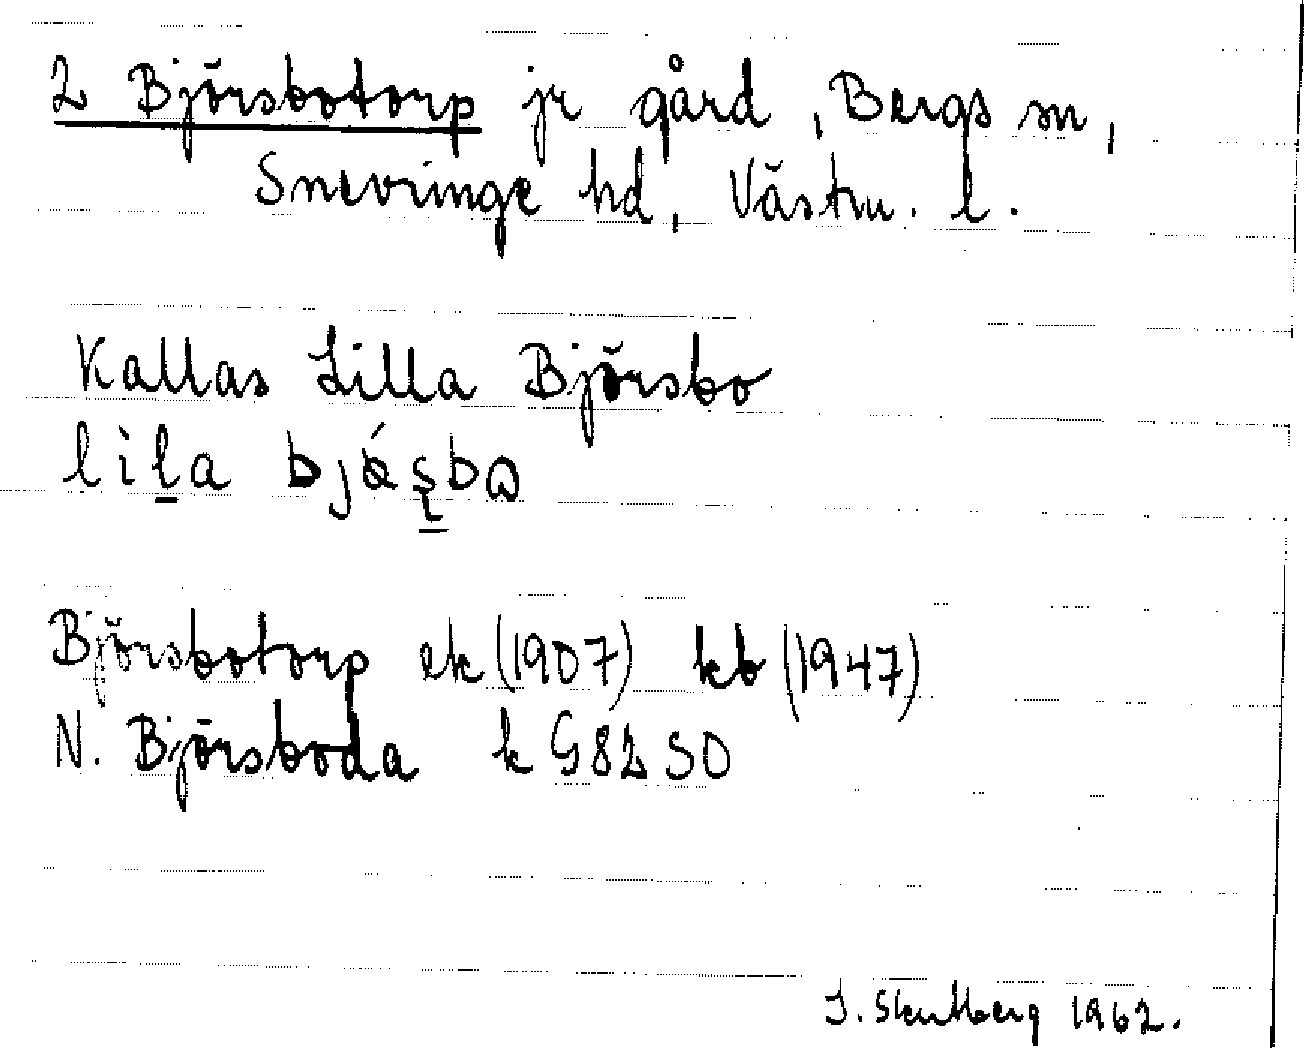 2 Björsbotorp jr gård, Bergs sn,
Snevringe hd, Västm. l.
Kallas Lilla Björsbo
lila bjǿşbɷ
Björsbotorp ek (1907) kb (1947)
N. Björsboda k G82 SO
J. Stenberg 1962.